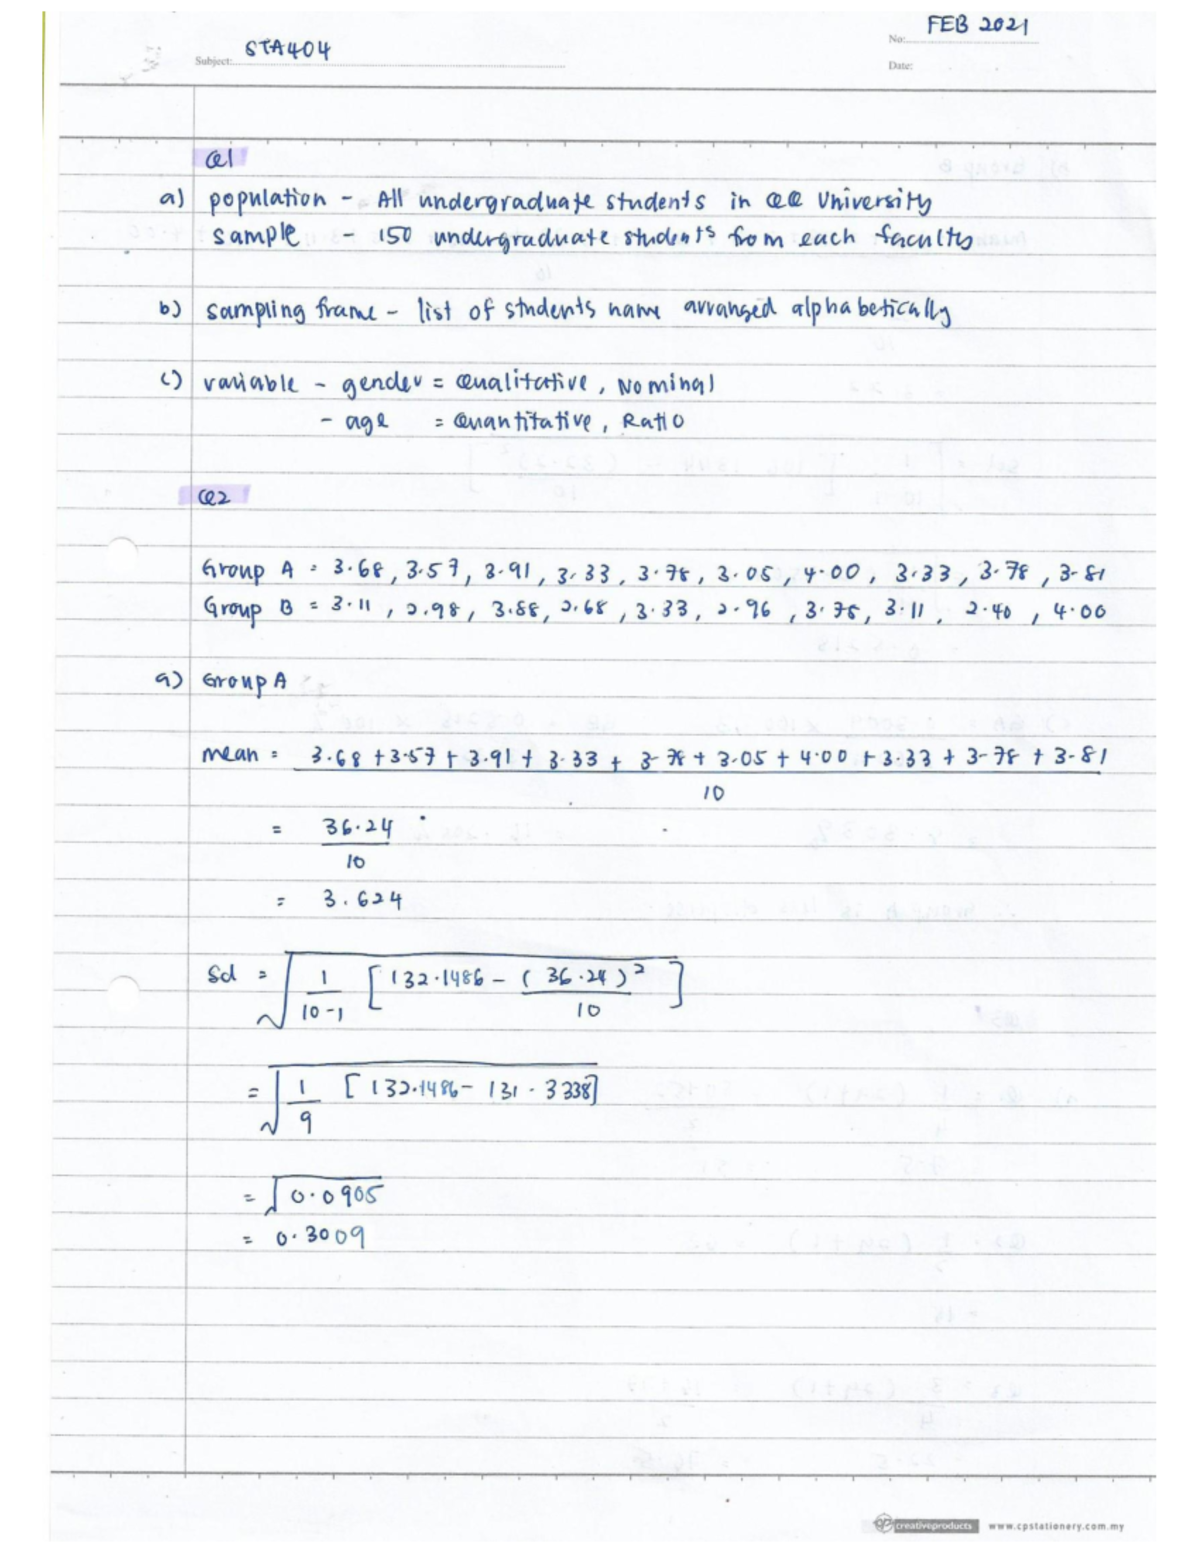 FEB 2021
No:
Subject: STA404
Date:
Q1
a) population - All undergraduate students in QQ University
sample - 150 undergraduate students from each faculty
b) sampling frame - list of students name arranged alphabetically
c) variable - gender = Qualitative, Nominal
- age = Quantitative, Ratio
Q2
Group A = 3.68, 3.57, 3.91, 3.33, 3.78, 3.05, 4.00, 3.33, 3.78, 3.81
Group B = 3.11, 2.98, 3.88, 2.68, 3.33, 2.96, 3.75, 3.11, 2.40, 4.00
a) Group A
mean = 3.68 + 3.57 + 3.91 + 3.33 + 3.78 + 3.05 + 4.00 + 3.33 + 3.78 + 3.81
10
= 36.24
10
= 3.624
Sd = √ 1 [132.1486 - (36.24)²]
10-1 10
= √ 1 [132.1486 - 131.3338]
9
= √0.0905
= 0.3009
cp creativeproducts www.cpstationery.com.my